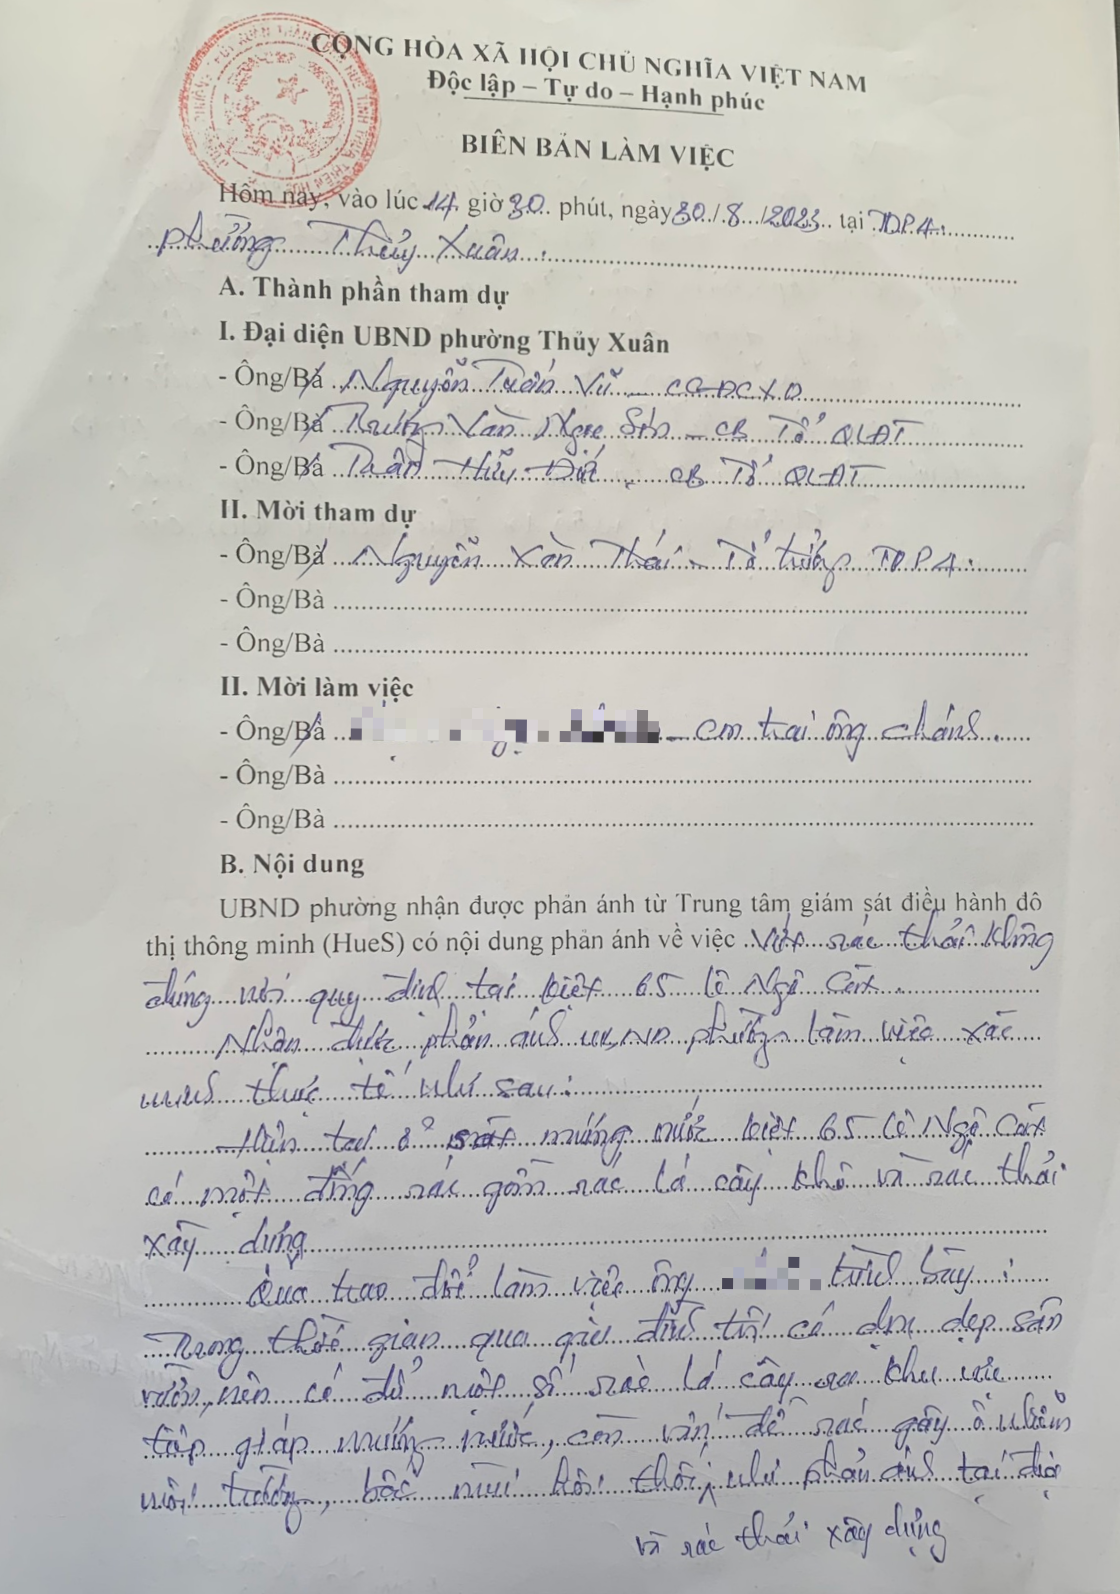 CỘNG HÒA XÃ HỘI CHỦ NGHĨA VIỆT NAM
Độc lập – Tự do – Hạnh phúc
BIÊN BẢN LÀM VIỆC
Hôm nay, vào lúc 14 giờ 30 phút, ngày 30/8/2023 tại TDP4.
phường Thủy Xuân.
A. Thành phần tham dự
I. Đại diện UBND phường Thủy Xuân
- Ông/Bà Nguyễn Tuấn Vũ - CC ĐCXD
- Ông/Bà Trương Văn Ngọc Sơn - CB Tổ QLĐT
- Ông/Bà Trần Hữu Đức - CB Tổ QLĐT
II. Mời tham dự
- Ông/Bà Nguyễn Thái - Tổ trưởng TDP4.
- Ông/Bà
- Ông/Bà
II. Mời làm việc
- Ông/Bà - em trai ông chánh.
- Ông/Bà
- Ông/Bà
B. Nội dung
UBND phường nhận được phản ánh từ Trung tâm giám sát điều hành đô
thị thông minh (HueS) có nội dung phản ánh về việc Vứt rác thải không
đúng nơi quy định tại kiệt 65 Lê Ngô Cát.
Nhận được phản ánh UBND phường làm việc xác
minh thực tế như sau:
Hiện tại ở sát mương nước kiệt 65 Lê Ngô Cát
có một đống rác gồm rác lá cây khô và rác thải
xây dựng
Qua trao đổi làm việc ông trình bày:
Trong thời gian qua gia đình tôi có dọn dẹp sân
vườn, nên có đổ một số rác lá cây ra khu vực
tiếp giáp mương nước, còn vấn đề rác gây ô nhiễm
môi trường, bốc mùi hôi thối như phản ánh tại địa
và rác thải xây dựng